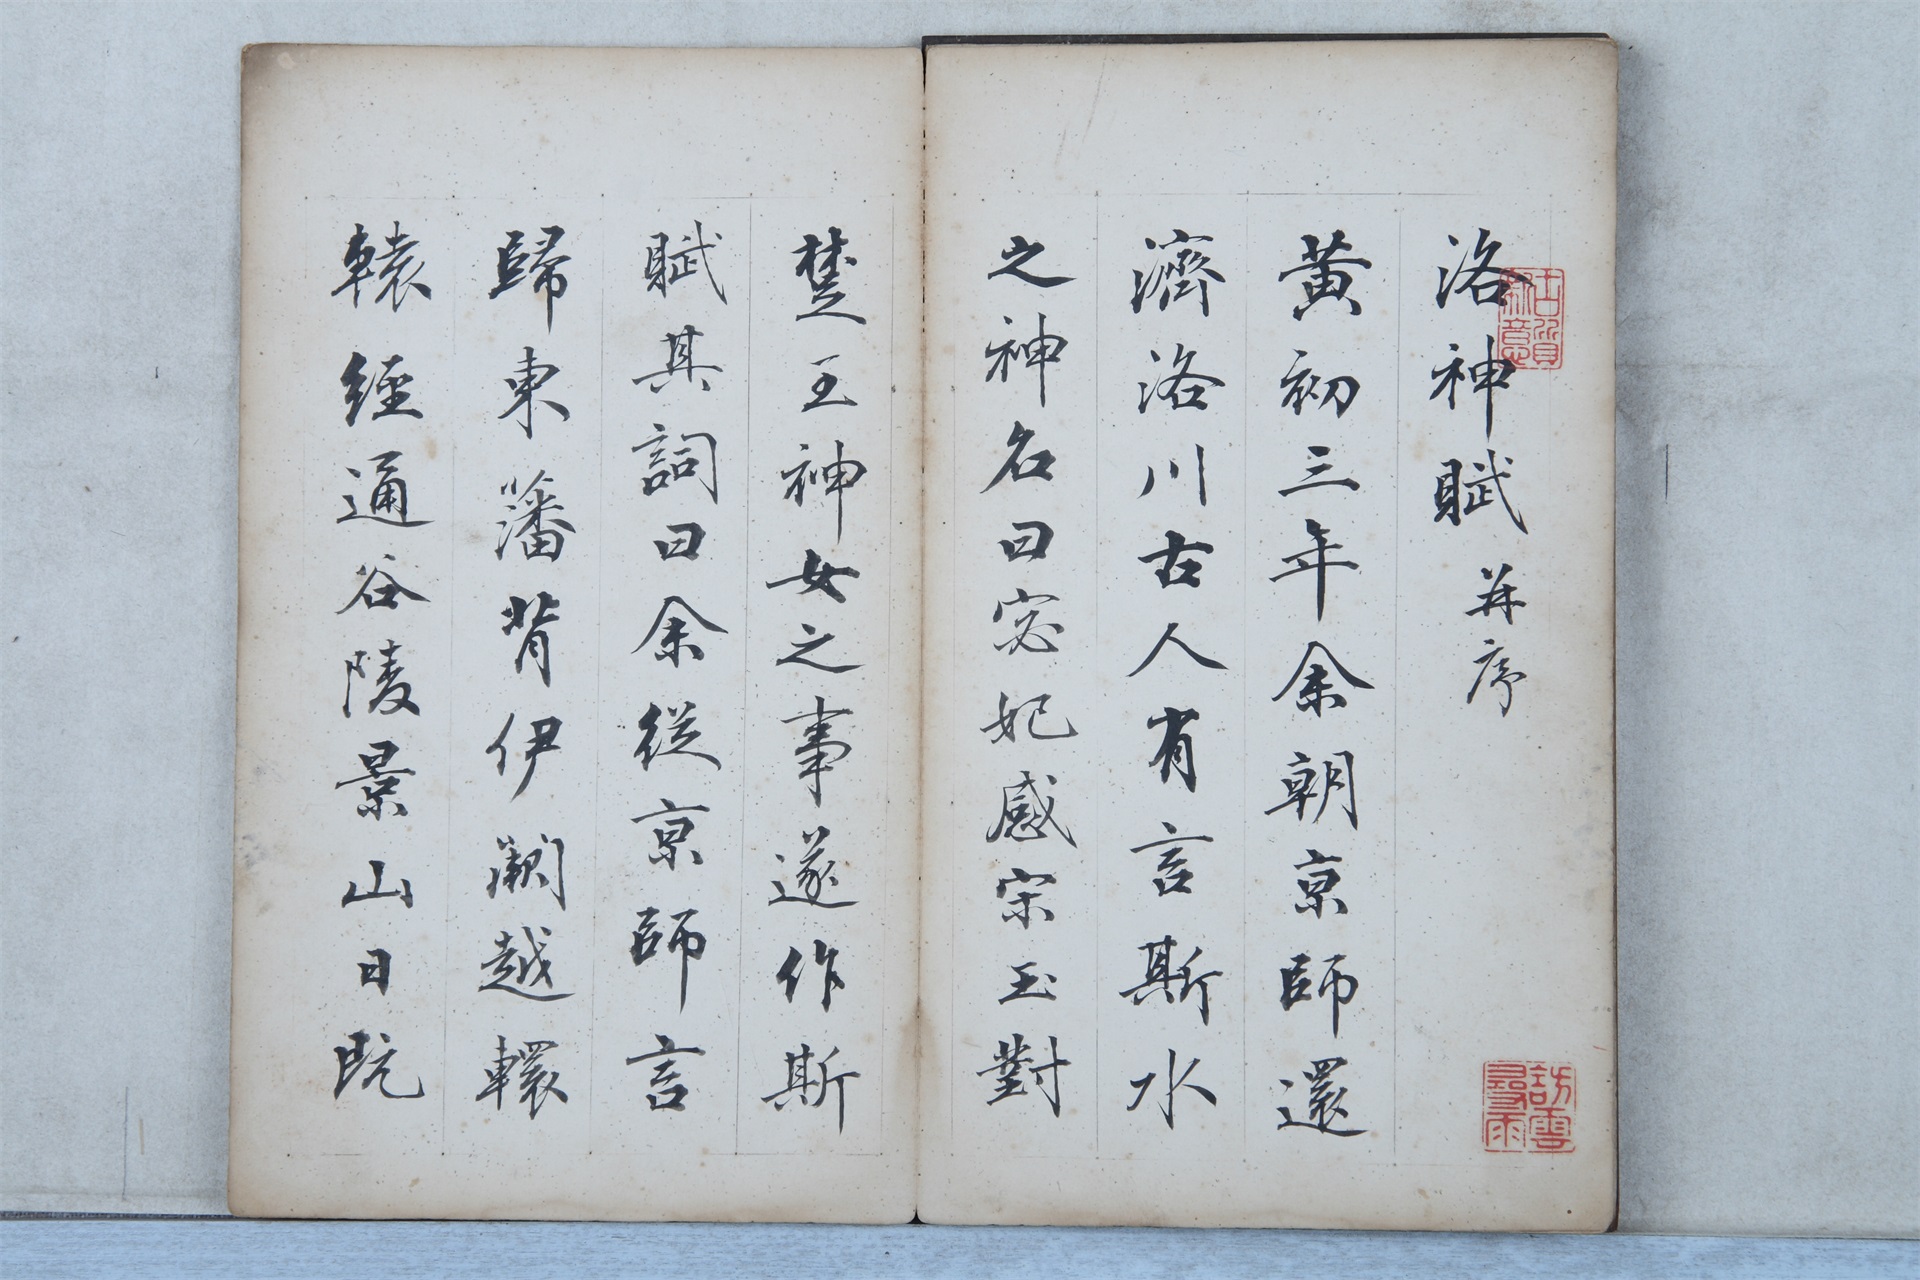 洛神賦 并序
黃初三年余朝京師還
濟洛川古人有言斯水
之神名曰宓妃感宋玉對
楚王神女之事遂作斯
賦其詞曰余從京師言
歸東藩背伊闕越轘
轅經通谷陵景山日既
訪雲尋雨